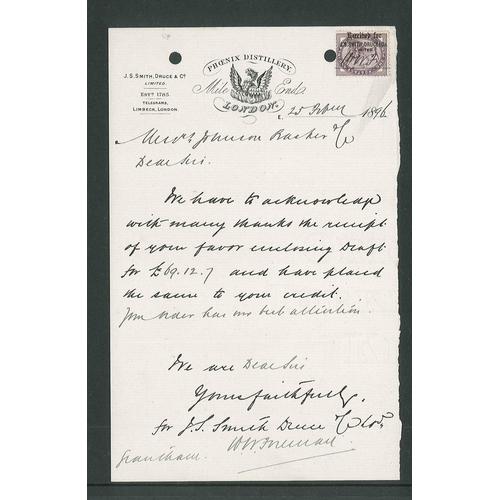 J. S. SMITH, DRUCE & Co
LIMITED.
ESTD 1785.
TELEGRAMS,
LIMBECK, LONDON.
PHŒNIX DISTILLERY,
Mile End,
LONDON, E.
Received for
J.S. SMITH, DRUCE & Co
LIMITED
25 1896
Messrs Johnson Basker & Co
Dear Sir.
We have to acknowledge
with many thanks the receipt
of your favor enclosing Draft
for £69.12.7 and have placed
the same to your credit.
Your order has our best attention.
We are Dear Sir
Yours faithfully,
for J. S. Smith Druce & Co Ld
Grantham.